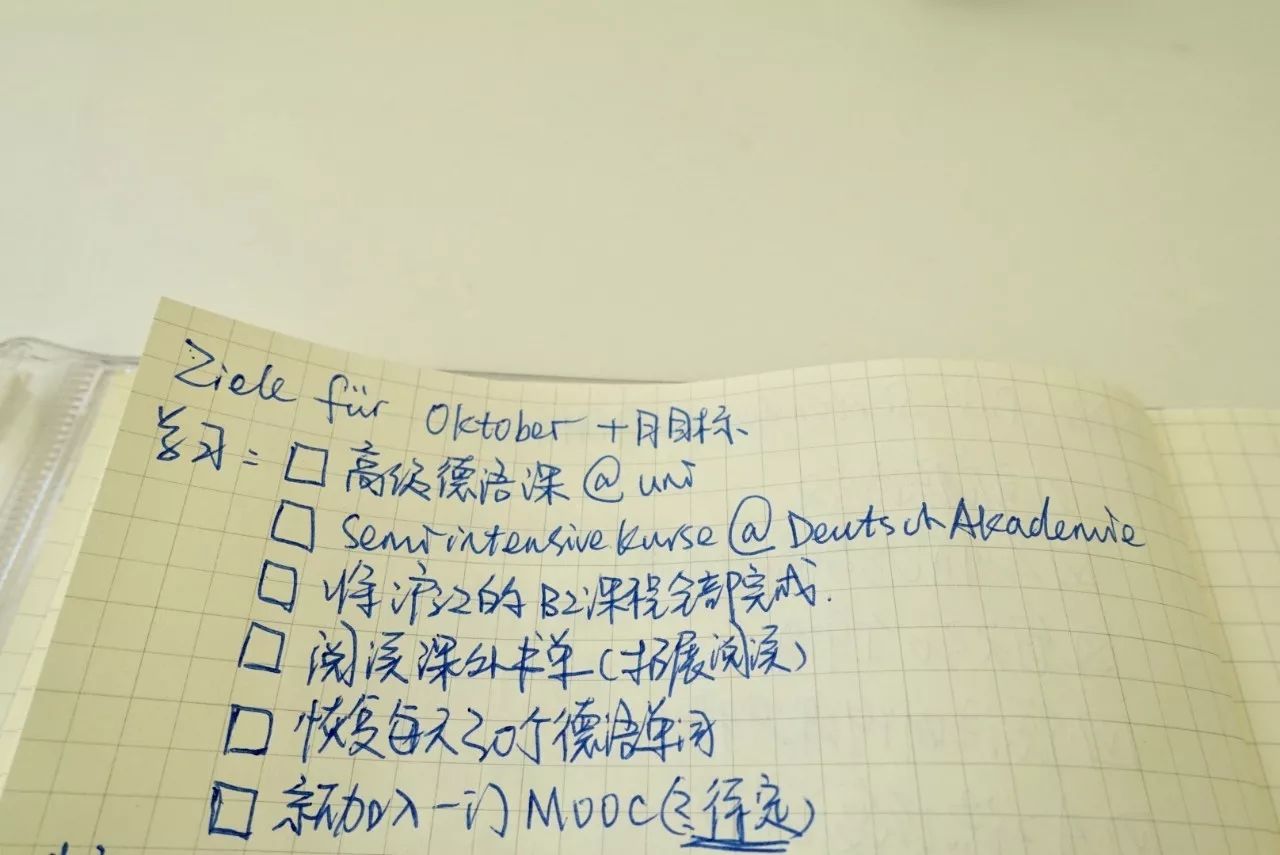 Ziele für Oktober 十月目标
学习: □ 高级德语课 @ uni
□ Semi intensive kurse @ Deutsch Akademie
□ 将沪江的 B2 课程全部完成.
□ 阅读课外书单 (拓展阅读)
□ 恢复每天30个德语单词
□ 新加入一门 MOOC (待定)